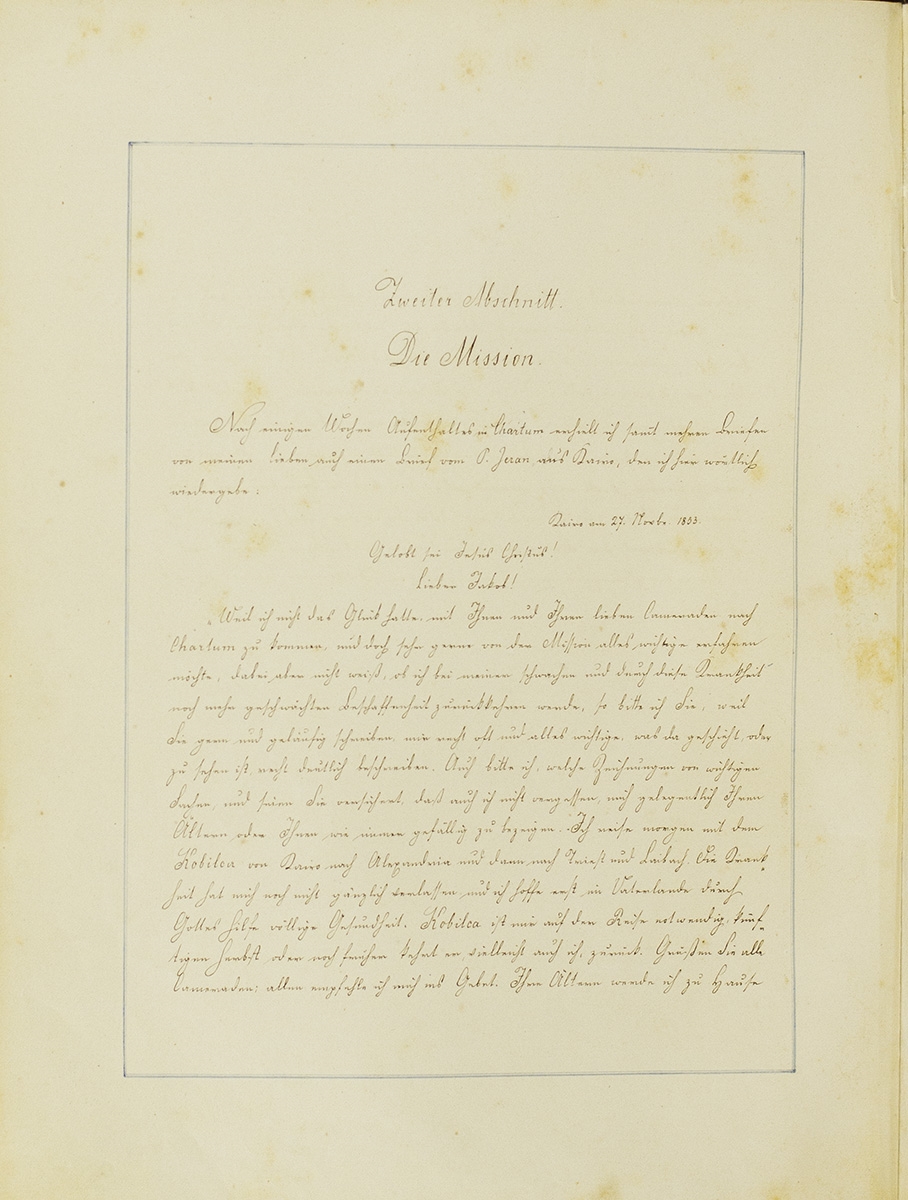 Zweiter Abschnitt.
Die Mission.
Nach einigen Wochen Aufenthaltes in Chartum erhielt ich samt mehren Briefen
von meinen Lieben auch einen Brief vom P. Jeran aus Kairo, den ich hier wörtlich
wiedergebe:
Kairo am 27. Novbr. 1853.
Gelobt sei Jesus Christus!
Lieber Jakob!
„Weil ich nicht das Glück hatte mit Ihnen und Ihren lieben Cameraden nach
Chartum zu kommen, und doch sehr gerne von der Mission alles wichtige erfahren
möchte, dabei aber nicht weiß, ob ich bei meiner schwachen und durch diese Krankheit
noch mehr geschwächten Beschaffenheit zurückkehren werde, so bitte ich Sie, weil
Sie gern und geläufig schreiben, mir recht oft und alles wichtige, was da geschieht, oder
zu sehen ist, recht deutlich beschreiben. Auch bitte ich, welche Zeichnungen von wichtigen
Sachen, und seien Sie versichert, daß auch ich nicht vergessen, mich gelegentlich Ihren
Ältern oder Ihnen wie immer gefällig zu bezeigen. Ich reise morgen mit dem
Kobilca von Kairo nach Alexandria und dann nach Triest und Laibach. Die Krank-
heit hat mich noch nicht gänzlich verlassen und ich hoffe erst im Vaterlande durch
Gottes Hilfe völlige Gesundheit. Kobilca ist mir auf der Reise notwendig, künf-
tigen Herbst oder noch früher kehrt er, vielleicht auch ich, zurück. Grüßen Sie alle
Cameraden; allen empfehle ich mich ins Gebet. Ihre Ältern werde ich zu Hause